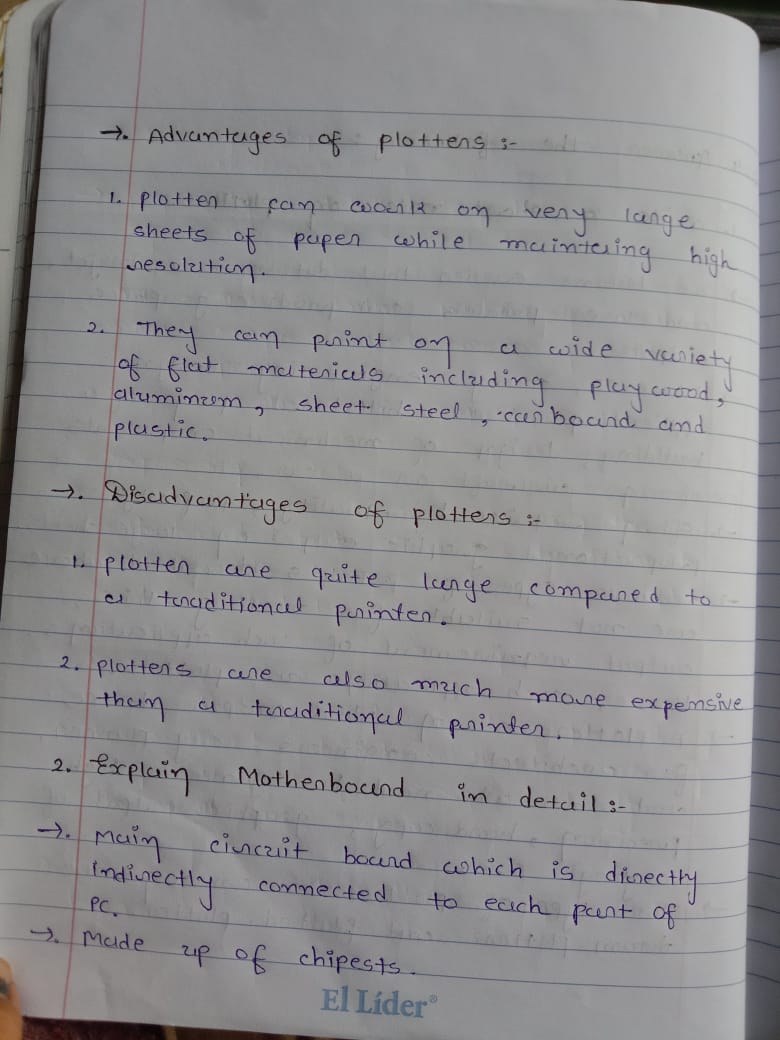 →. Advantages of plotters :-
1. plotter can work on very large
sheets of paper while maintaing high
resolution.
2. They can print on a wide variety
of flat materials including playwood,
aluminum, sheet steel, carboard and
plastic.
→. Disadvantages of plotters :-
1. plotter are quite large compared to
a traditional printer.
2. plotters are also much more expensive
than a traditional printer.
2. Explain Motherboard in detail :-
→. Main circuit board which is directly
indirectly connected to each part of
PC.
→. Made up of chipests.
El Líder®